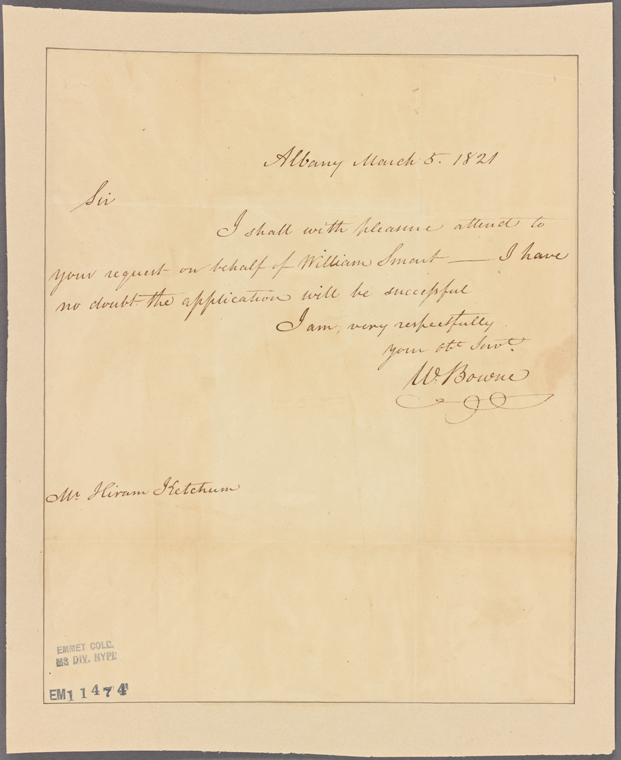 Albany March 5. 1821
Sir
I shall with pleasure attend to
your request on behalf of William Smart — I have
no doubt the application will be successful
I am, very respectfully
your obt. Servt.
W. Bowne
Mr Hiram Ketchum
EMMET COLL.
MS DIV. NYPL
EM11474